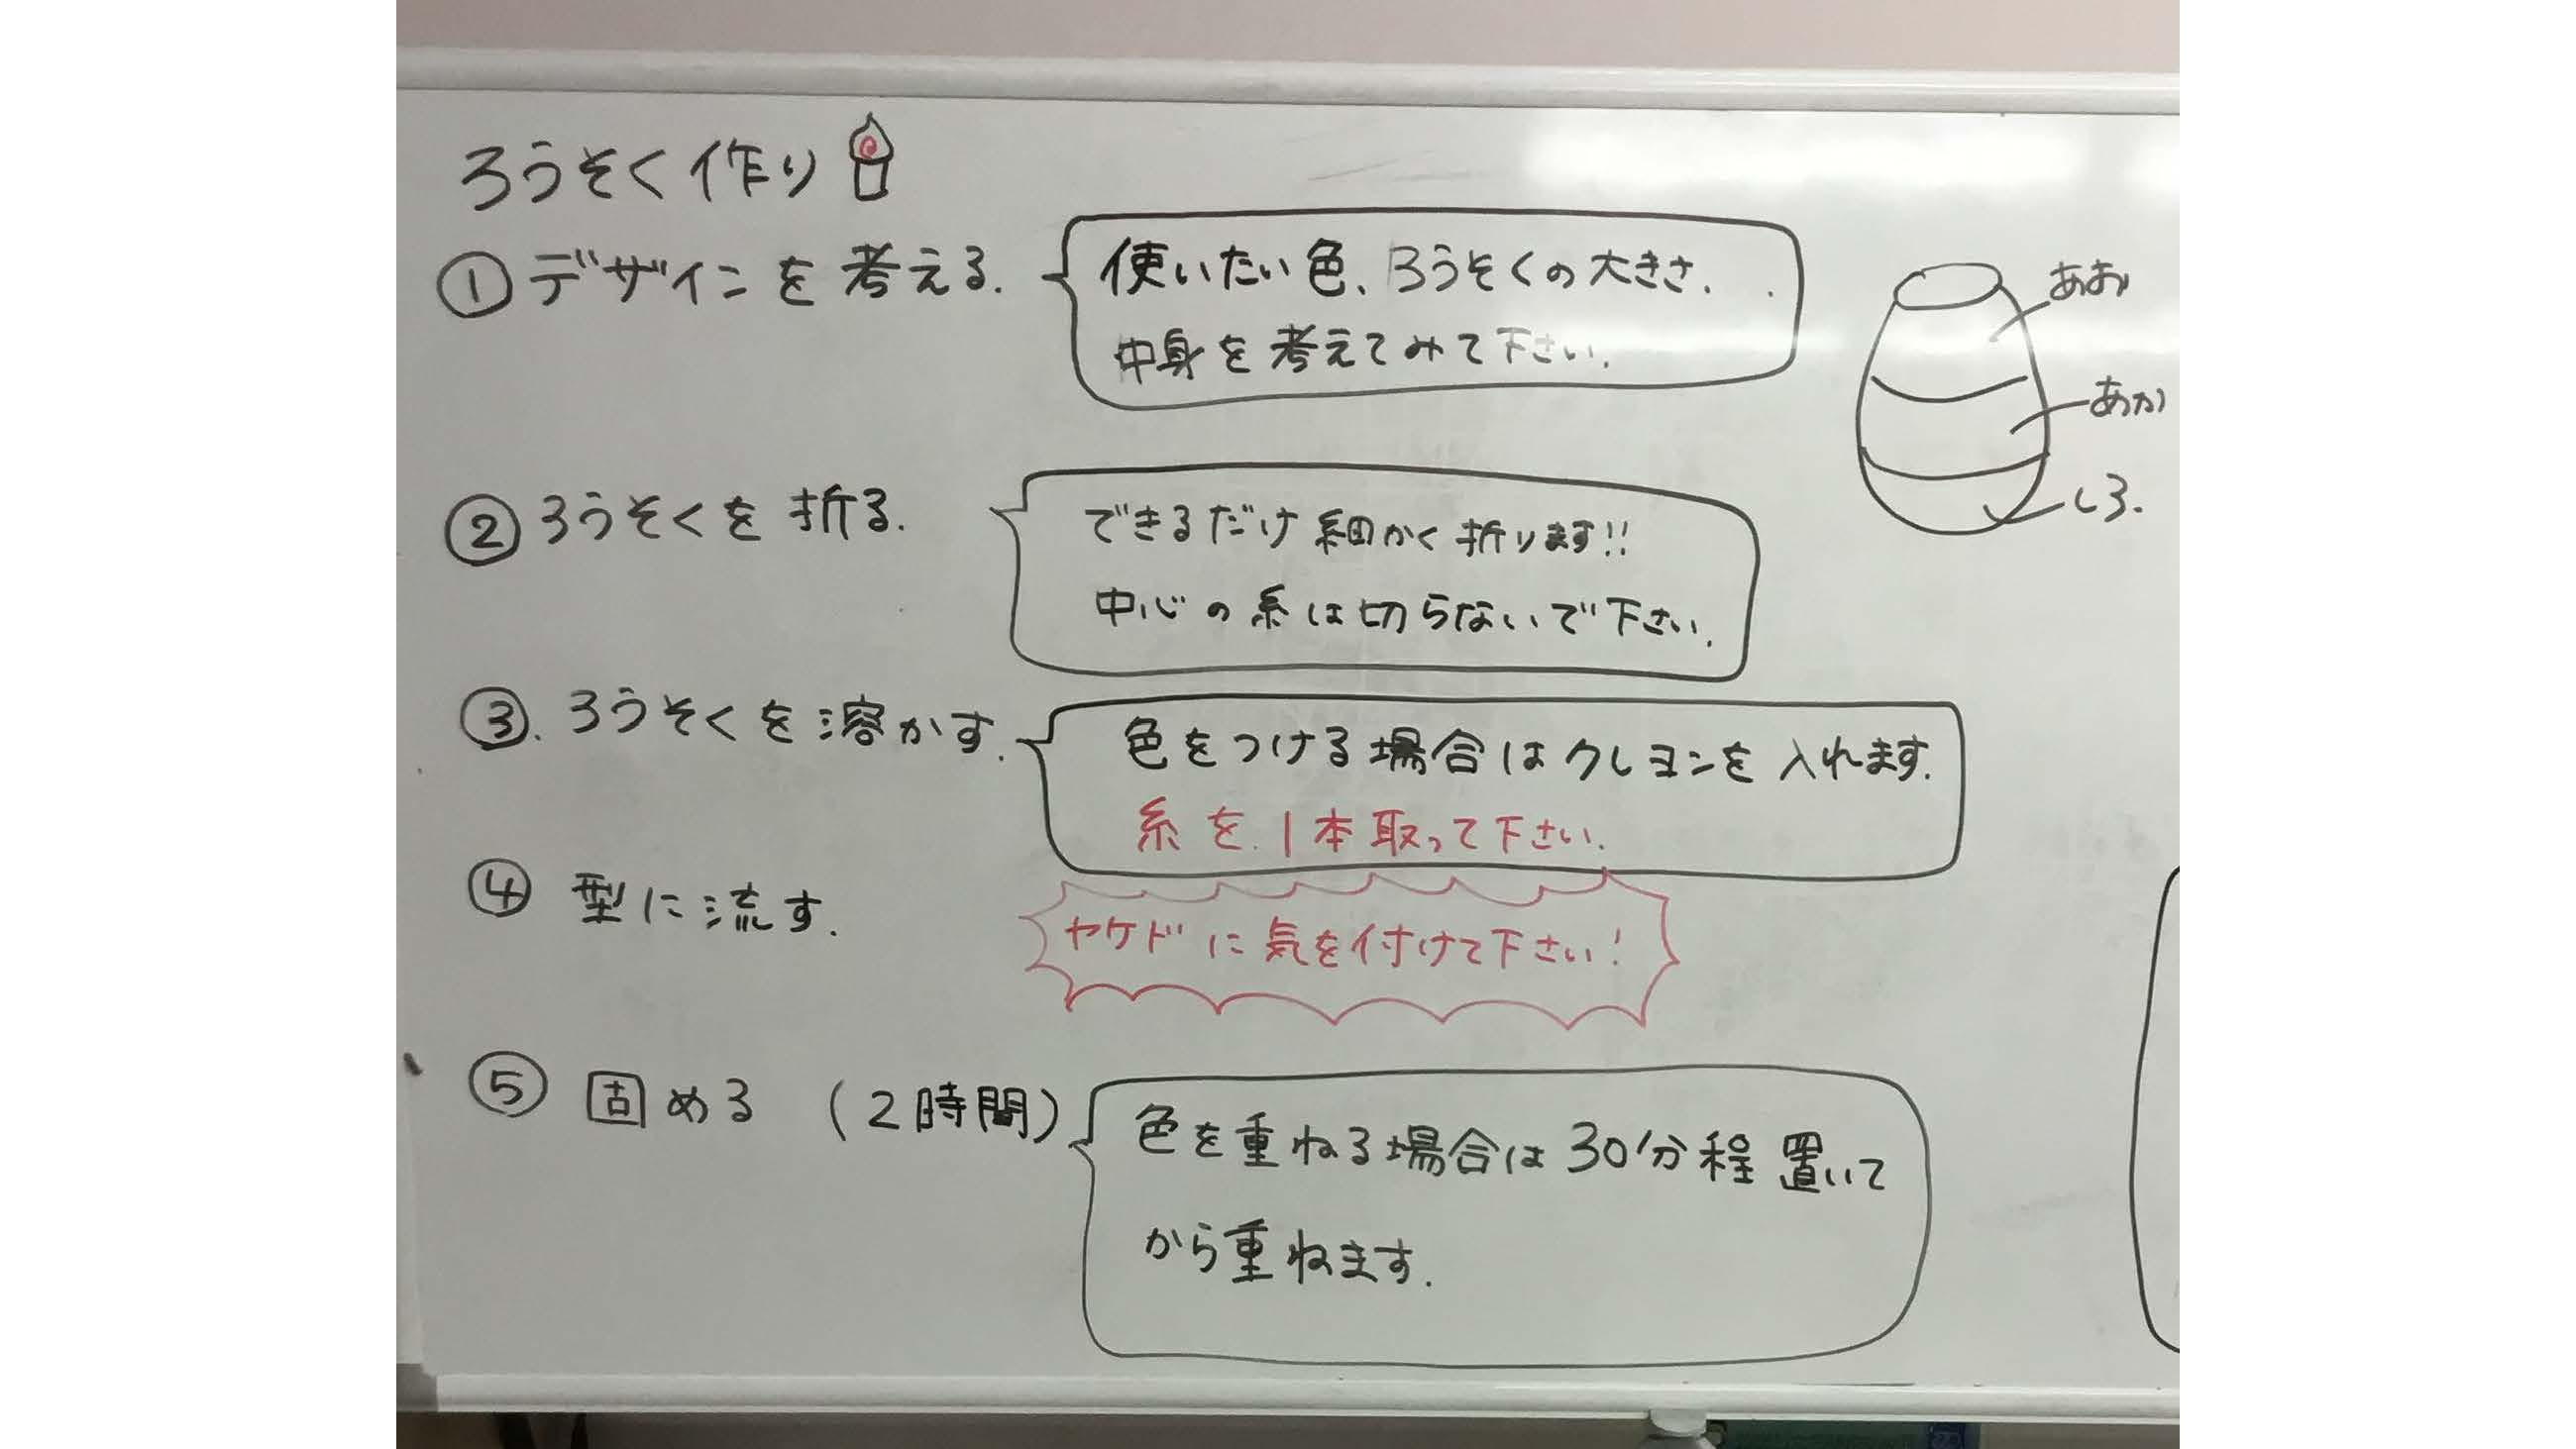 ろうそく作り
①デザインを考える.
使いたい色、ろうそくの大きさ.
中身を考えてみて下さい.
あお
あか
しろ.
②ろうそくを折る.
できるだけ細かく折ります!!
中心の糸は切らないで下さい.
③.ろうそくを溶かす.
色をつける場合はクレヨンを入れます.
糸を.1本取って下さい.
④型に流す.
ヤケドに気を付けて下さい!
⑤固める(2時間)
色を重ねる場合は30分程置いて
から重ねます.